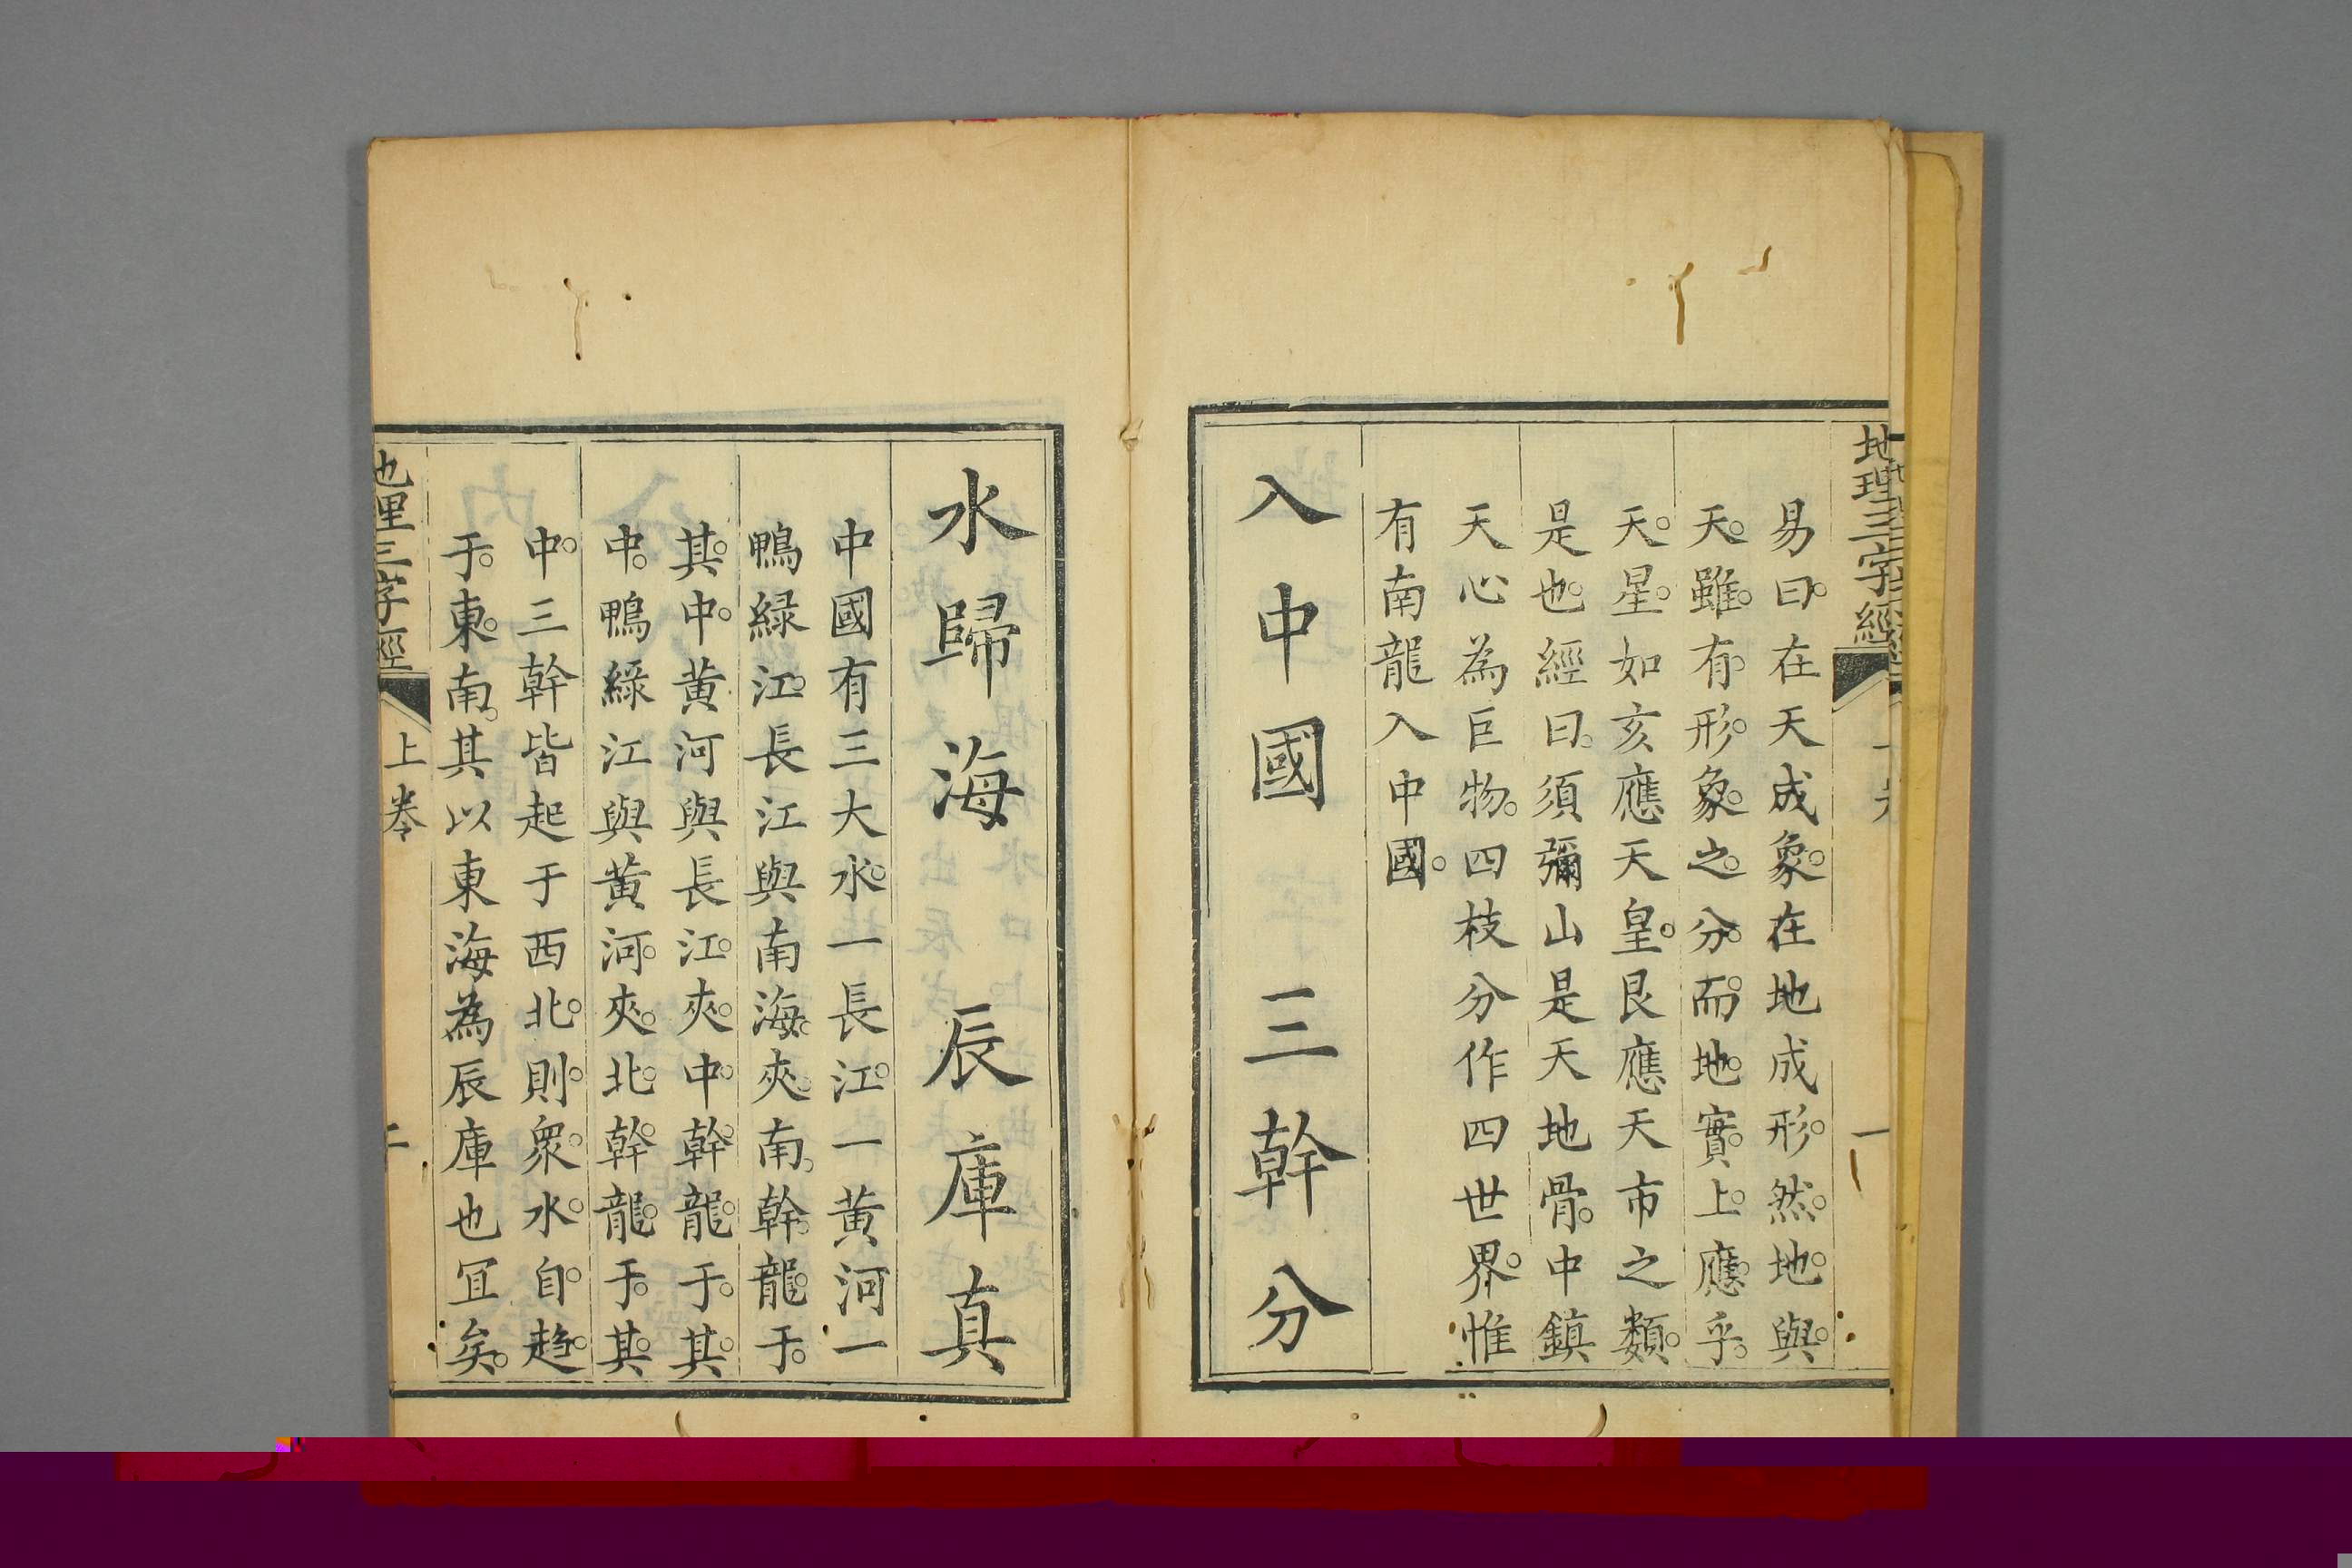 地理三字經
易曰在天成象在地成形然地與
天雖有形象之分而地實上應乎
天星如亥應天皇艮應天市之類
是也經曰須彌山是天地骨中鎮
天心為巨物四枝分作四世界惟
有南龍入中國
入中國 三幹分
水歸海 辰庫真
中國有三大水一長江一黃河一
鴨緑江長江與南海夾南幹龍于
其中黃河與長江夾中幹龍于其
中鴨綠江與黃河夾北幹龍于其
中三幹皆起于西北則衆水自趋
于東南其以東海為辰庫也冝矣
地理三字經 上卷 二